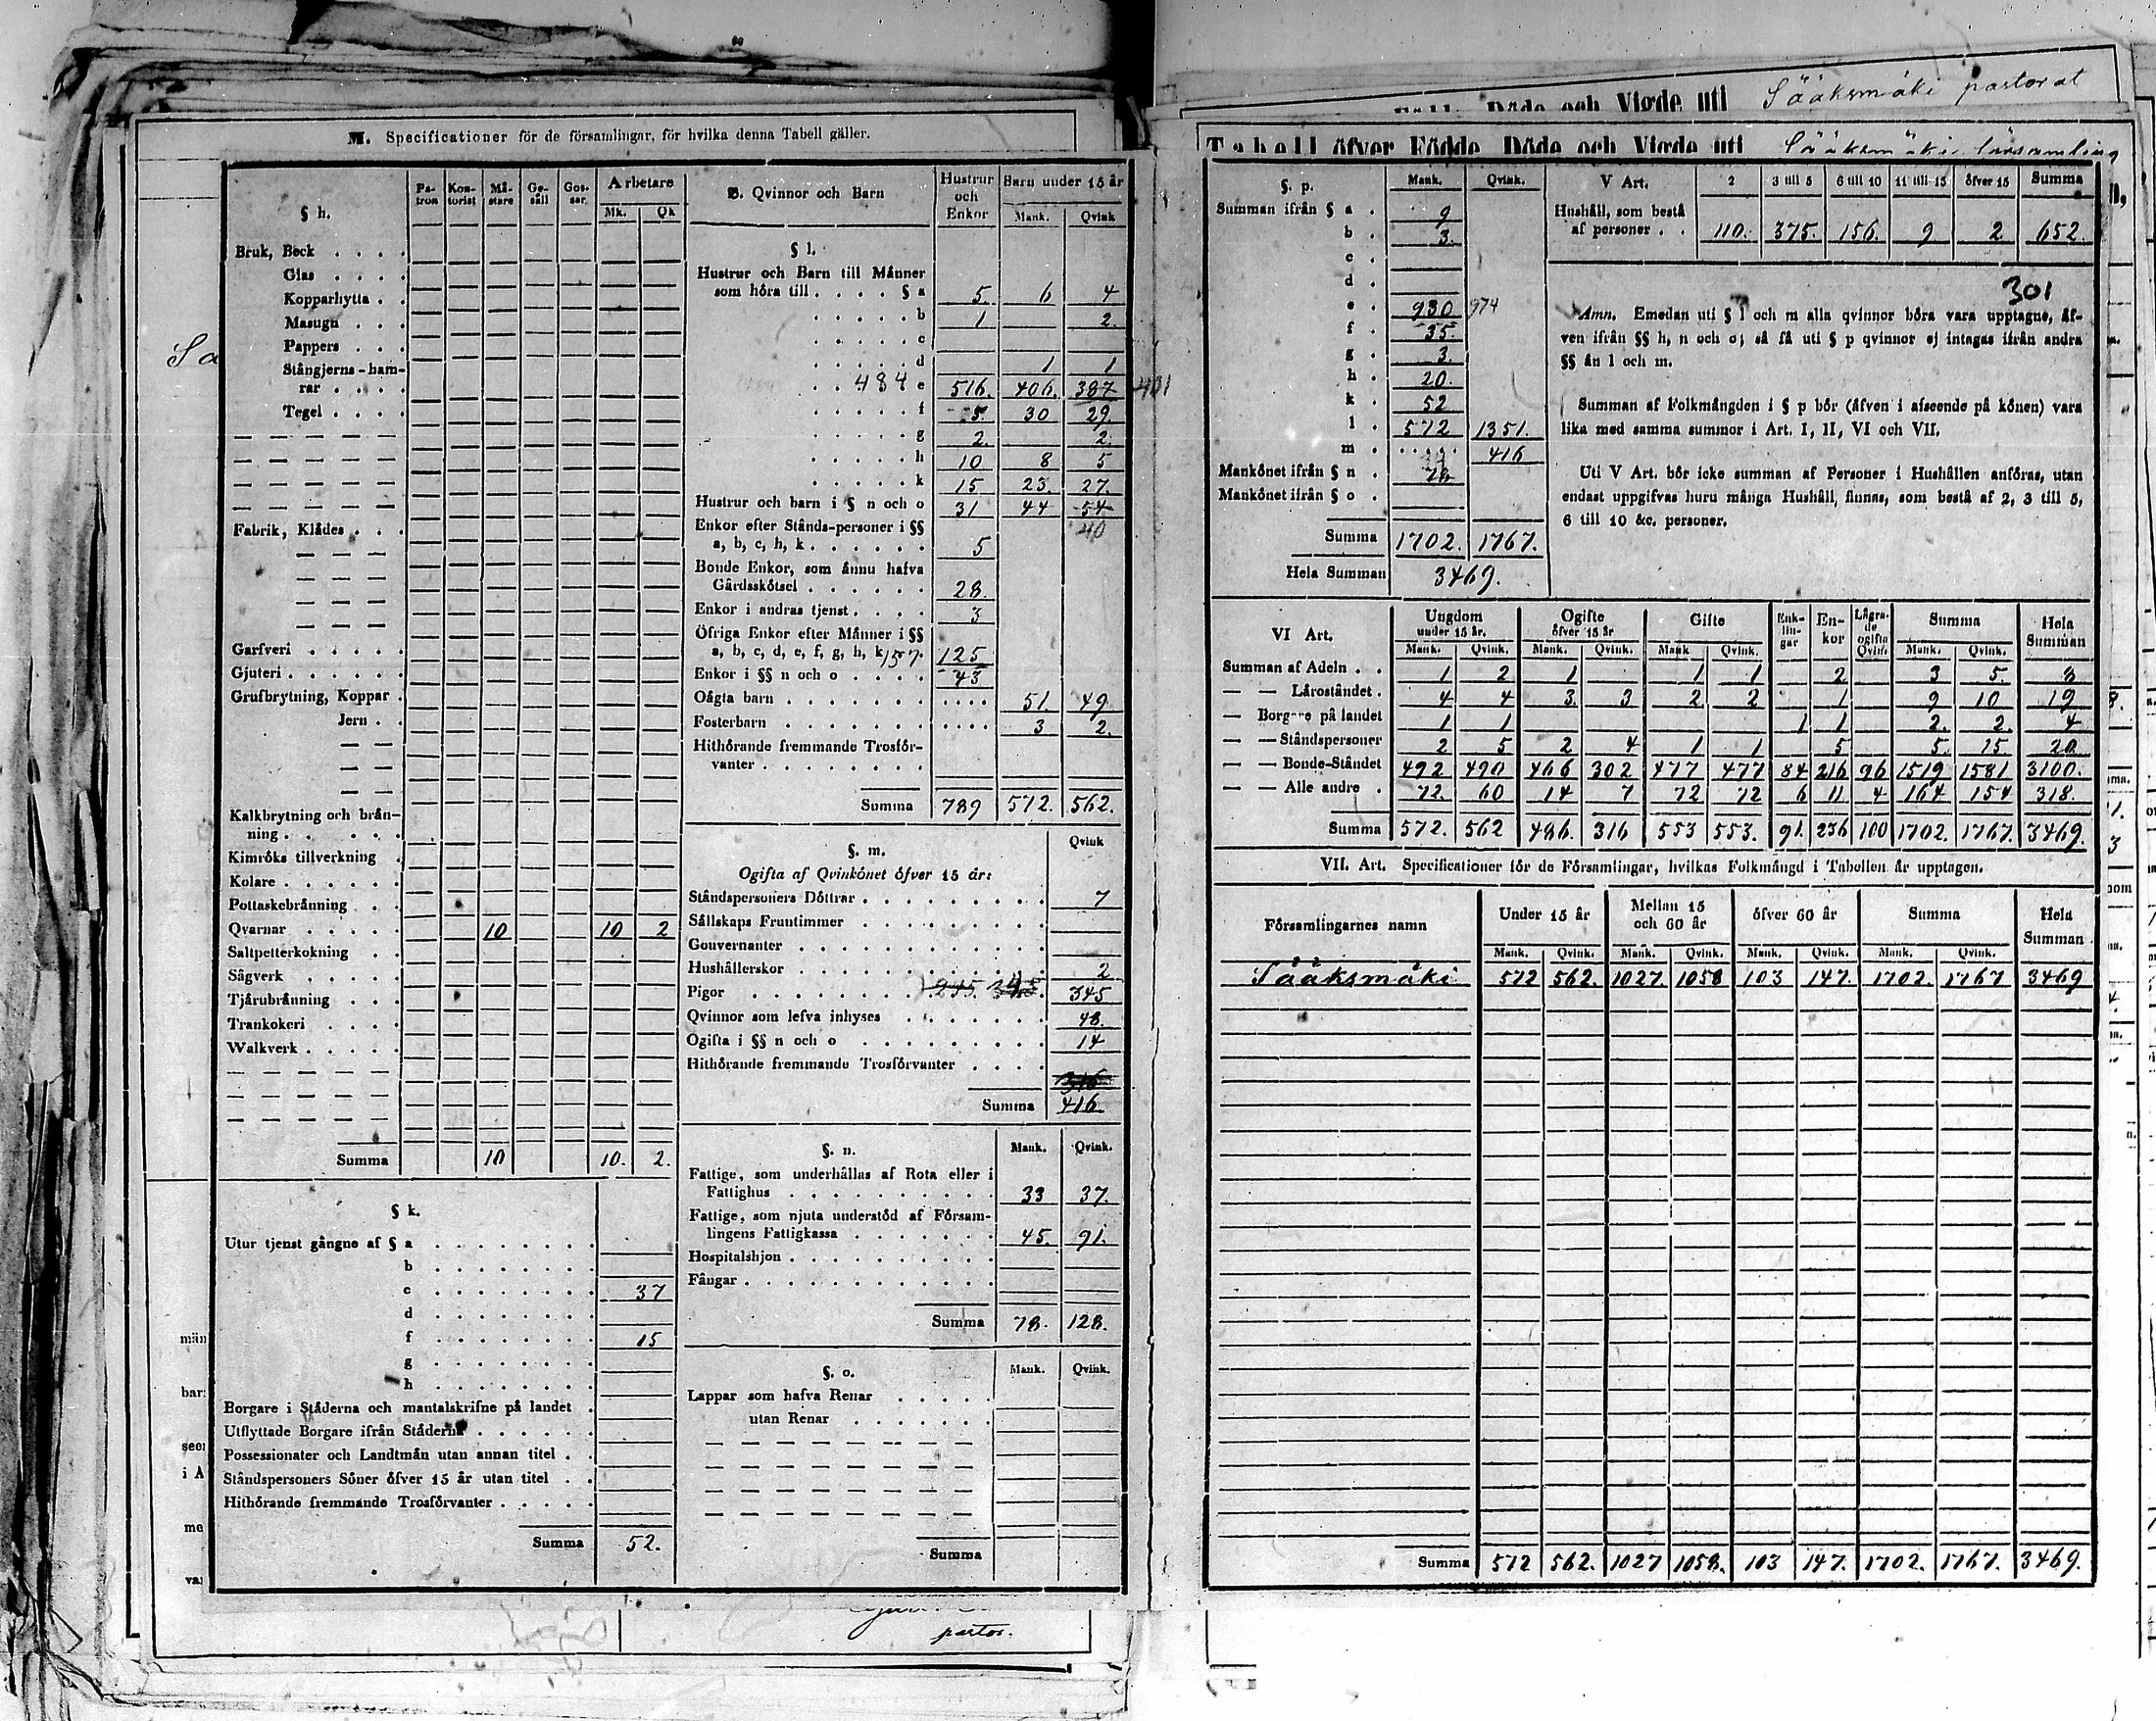 Sääksmäki pastorat
Döde och Vigde uti
M. Specificationer för de församlingar, för hvilka denna Tabell gäller.
Tabell öfver Födde, Döde och Vigde uti Sääksmäki församling
§ h. Pa-tron Kon-torist Mä-stare Ge-säll Gos-sar Arbetare Mk. Qk
Bruk, Beck
Glas
Kopparhytta
Masugn
Pappers
Stångjerns-ham-
rar
Tegel
Fabrik, Klädes
Garfveri
Gjuteri
Grufbrytning, Koppar
Jern
Kalkbrytning och brän-
ning
Kimröks tillverkning
Kolare
Pottaskebränning
Qvarnar 10 10 2
Saltpetterkokning
Sågverk
Tjärubränning
Trankokeri
Walkverk
Summa 10 10. 2.
§ k.
Utur tjenst gångne af § a
b
c 37
d
f 15
g
h
Borgare i Städerna och mantalskrifne på landet
Utflyttade Borgare ifrån Städerna
Possessionater och Landtmän utan annan titel
Ståndspersoners Söner öfver 15 år utan titel
Hithörande fremmande Trosförvanter
Summa 52.
B. Qvinnor och Barn Hustrur och Enkor Barn under 15 år Mank. Qvink
§ l.
Hustrur och Barn till Männer
som höra till § a 5. 6 4
b 1 2.
c
d 1 1
484 e 516. 406. 387 401
f 5. 30 29.
g 2. 2.
h 10 8 5
k 15 23. 27.
Hustrur och barn i § n och o 31 44 54
40
Enkor efter Stånds-personer i §§
a, b, c, h, k 5
Bonde Enkor, som ännu hafva
Gårdsskötsel 28.
Enkor i andras tjenst 3
Öfriga Enkor efter Männer i §§
a, b, c, d, e, f, g, h, k 157. 125
Enkor i §§ n och o 43
Oägta barn 51. 49
Fosterbarn 3 2.
Hithörande fremmande Trosför-
vanter
Summa 789 572. 562.
§. m. Qvink
Ogifta af Qvinkönet öfver 15 år:
Ståndspersoners Döttrar 7
Sällskaps Fruntimmer
Gouvernanter
Hushållerskor 2
Pigor 345
Qvinnor som lefva inhyses 48.
Ogifta i §§ n och o 14
Hithörande fremmande Trosförvanter
Summa 416
§. n. Mank. Qvink.
Fattige, som underhållas af Rota eller i
Fattighus 33 37.
Fattige, som njuta understöd af Försam-
lingens Fattigkassa 45. 91.
Hospitalshjon
Fångar
Summa 78. 128.
§. o. Mank. Qvink.
Lappar som hafva Renar
utan Renar
Summa
pastor.
§. p. Mank. Qvink.
Summan ifrån § a 9
b 3.
c
d
e 930 974
f 35.
g 3.
h 20.
k 52
l 572 1351.
m 416
Mankönet ifrån § n
Mankönet ifrån § o
Summa 1702. 1767.
Hela Summan 3469.
V Art. 2 3 till 5 6 till 10 11 till 15 öfver 15 Summa
Hushåll, som bestå
af personer 110. 375. 156. 9 2 652.
301
Anm. Emedan uti § l och m alla qvinnor böra vara upptagne, äf-
ven ifrån §§ h, n och o; så få uti § p qvinnor ej intagas ifrån andra
§§ än l och m.
Summan af Folkmängden i § p bör (äfven i afseende på könen) vara
lika med samma summor i Art. I, II, VI och VII.
Uti V Art. bör icke summan af Personer i Hushållen anföras, utan
endast uppgifvas huru många Hushåll, finnas, som bestå af 2, 3 till 5,
6 till 10 &c. personer.
VI Art. Ungdom under 15 år. Ogifte öfver 15 år Gifte Enk-lin-gar En-kor Lägra-de ogifta Qvin. Summa Hela Summan
Mank. Qvink. Mank. Qvink. Mank Qvink. Mank. Qvink.
Summan af Adeln 1 2 1 1 1 2 3 5. 8
— — Läroståndet 4 4 3. 3 2 2 1 9 10 19
— Borgare på landet 1 1 1 1 2. 2. 4
— — Ståndspersoner 2 5 2 4 1 1 5 5. 15. 20.
— — Bonde-Ståndet 492 490 466 302 477 477 84 216 96 1519 1581 3100.
— — Alle andre 72. 60 14 7 72 72 6 11 4 164 154 318.
Summa 572. 562 486. 316 553 553. 91. 236 100 1702. 1767. 3469.
VII. Art. Specificationer för de Församlingar, hvilkas Folkmängd i Tabellen är upptagen.
Församlingarnes namn Under 15 år Mellan 15 och 60 år öfver 60 år Summa Hela Summan
Mank. Qvink. Mank. Qvink. Mank. Qvink. Mank. Qvink.
Sääksmäki 572 562. 1027. 1058 103 147. 1702. 1767 3469
Summa 572 562. 1027 1058. 103 147. 1702. 1767. 3469.